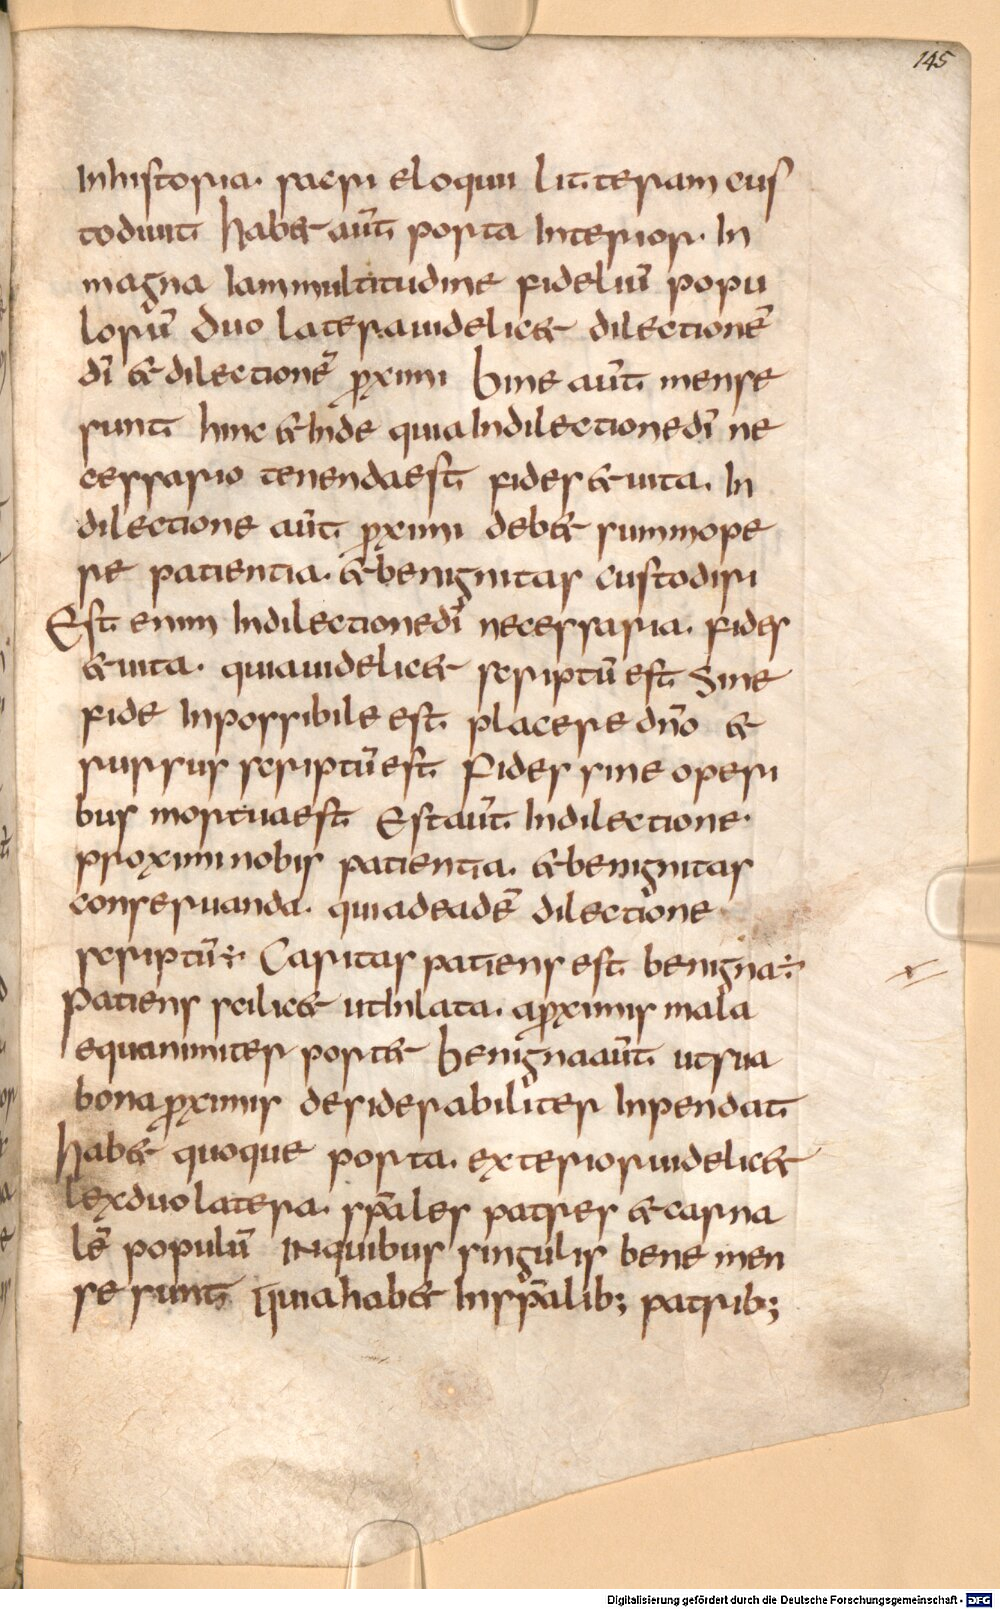 145
Inhistoria. sacri eloquii litteram cus
todiunt habet aūt porta Interior. In
magna Iammultitudine fideliū popu
lorū duo lateravidelicet dilectionē
dī et dilectionē ꝓximi hinc aūt mense
sunt hinc etInde quiaIndilectionedī ne
cessario tenendaest fides etuita. In
dilectione aūt ꝓximi debet summope
re patientia. etbenignitas custodiri
Est enim Indilectionedī necessaria. fides
etuita. quiauidelicet scriptū est Sine
fide Inpossibile est placere dn̄o et
rursus scriptūest Fides sine operi
bus mortuaest Estaūt Indilectione.
proximinobis patientia. etbenignitas
conseruanda. quiadeadē dilectione
scriptū÷ Caritas patiens est benigna÷
Patiens scilicet utInlata. aꝓximis mala
equanimiter portet benignaaūt utsua
bonaꝓximis desiderabiliter Inpendat
habet quoque porta. exteriorvidelicet
lexduolatera. sp̄ales patres etcarna
lē populū INquibus singulis bene men
se sunt quiahabet Insp̄alib; patrib;
Digitalisierung gefördert durch die Deutsche Forschungsgemeinschaft - DFG